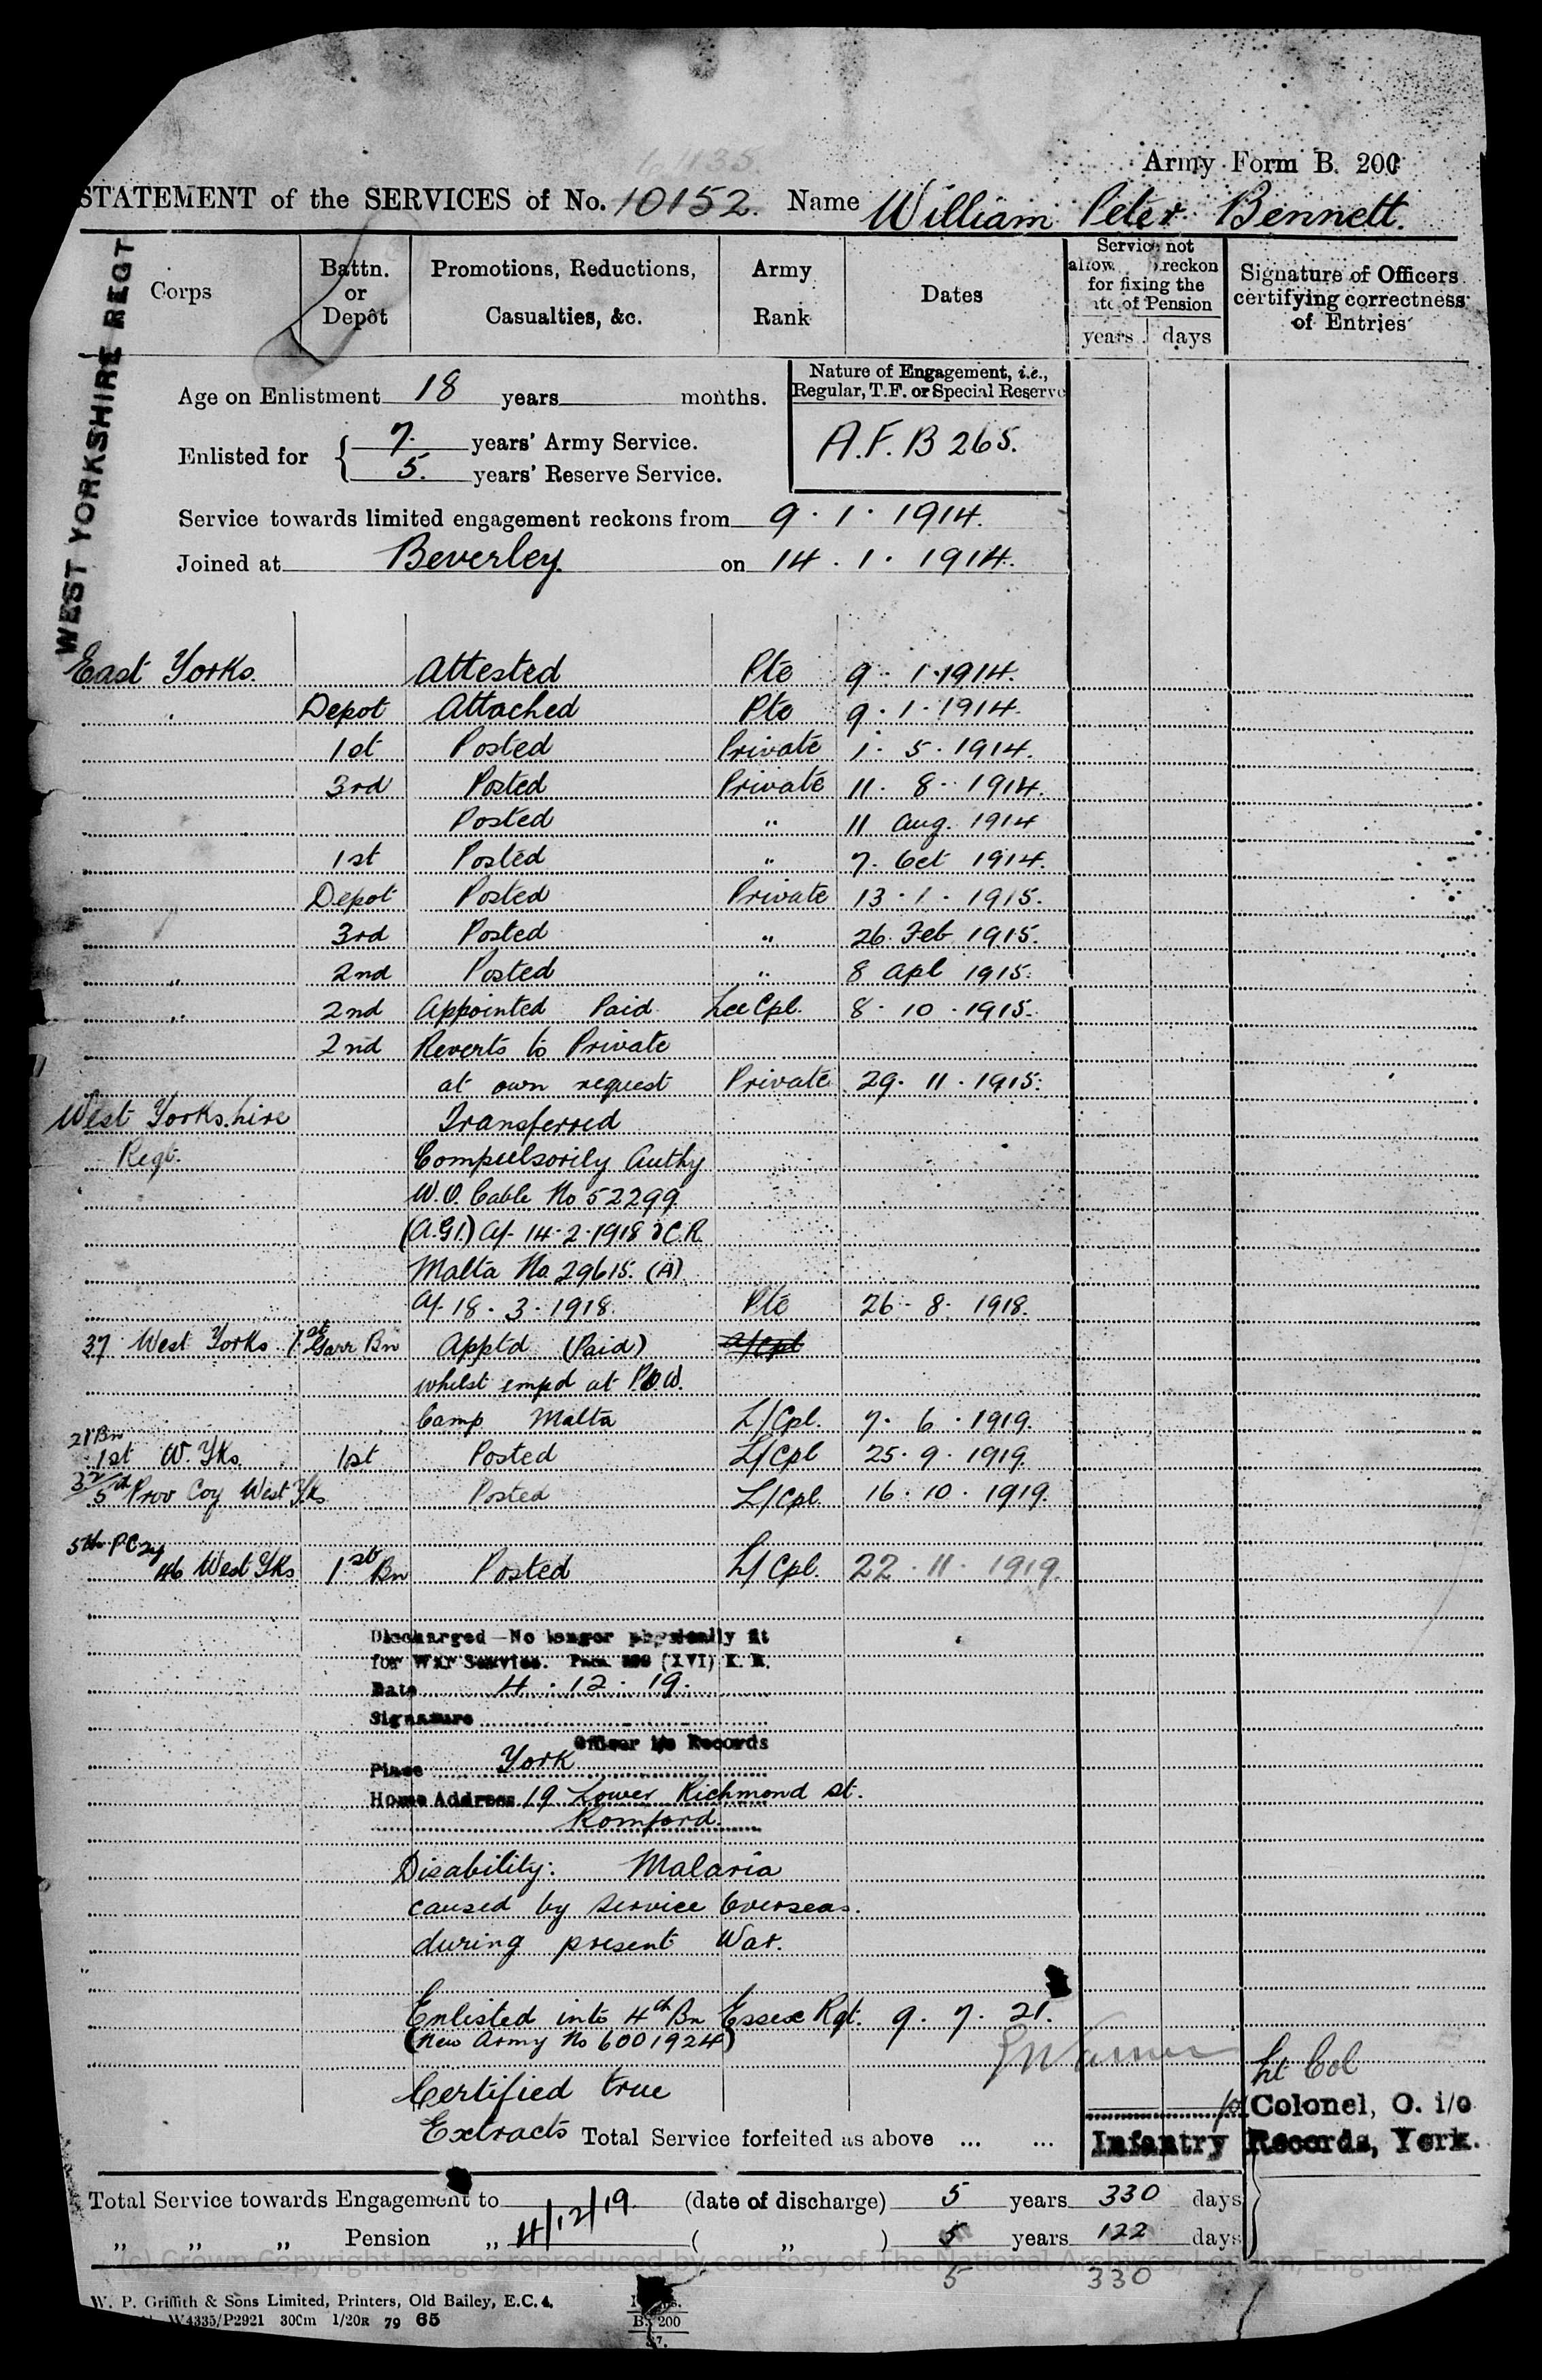 Army Form B. 200
STATEMENT of the SERVICES of No. 10152. Name William Peter Bennett.
WEST YORKSHIRE REGT
Corps
Battn. or Depôt
Promotions, Reductions, Casualties, &c.
Army Rank
Dates
Service not allow reckon for fixing the of Pension
years days
Signature of Officers certifying correctness of Entries
Age on Enlistment 18 years months.
Nature of Engagement, i.e., Regular, T.F. or Special Reserve
A.F. B 265.
Enlisted for { 7. years' Army Service.
5. years' Reserve Service.
Service towards limited engagement reckons from 9 . 1 . 1914.
Joined at Beverley. on 14 . 1 . 1914.
East Yorks. Attested Pte 9 . 1 . 1914.
" Depot Attached Pte 9 . 1 . 1914.
1st Posted Private 1 . 5 . 1914.
3rd Posted Private 11 . 8 . 1914.
Posted " 11 Aug. 1914
1st Posted " 7. Oct 1914.
Depot Posted Private 13 . 1 . 1915.
3rd Posted " 26 Feb 1915.
" 2nd Posted " 8 Apl 1915.
" 2nd Appointed Paid Lce Cpl. 8 . 10 . 1915.
2nd Reverts to Private
at own request Private 29 . 11 . 1915.
West Yorkshire Transferred
Regt. Compulsorily Authy
W.O. Cable No 52299
(A.G1.) d/- 14 . 2 . 1918 & C.R.
Malta No. 29615. (A)
d/- 18 . 3 . 1918. Pte 26 . 8 . 1918.
37 West Yorks 1st Garr Bn Apptd (Paid) a/Cpl
whilst empd at P.O.W.
Camp Malta L/Cpl. 7 . 6 . 1919.
21 Bn
1st W. Yks. 1st Posted L/Cpl 25 . 9 . 1919.
32/5th Prov Coy West Yks Posted L/Cpl. 16 . 10 . 1919.
5th P C
46 West Yks. 1st Bn Posted L/Cpl. 22 . 11 . 1919.
Discharged—No longer physically fit
for War Service. Para. (XVI) K. R.
Date 4 . 12 . 19.
Signature
Officer i/c Records
Place York
Home Address 19 Lower Richmond St.
Romford.
Disability: Malaria
caused by service Overseas.
during present War.
Enlisted into 4th Bn Essex Rgt. 9 . 7 . 21.
(New Army No 6001924)
Lt Col
Certified true
Colonel, O. i/o
Extracts Total Service forfeited as above ... ...
Infantry Records, York.
Total Service towards Engagement to 4/12/19 (date of discharge) 5 years 330 days
" " " Pension " ( " ) 5 years 122 days
5 330
(c) Crown Copyright Images reproduced by courtesy of The National Archives, London, England
W. P. Griffith & Sons Limited, Printers, Old Bailey, E.C. 4.
W4335/P2921 300m 1/20R 79 65
B. 200